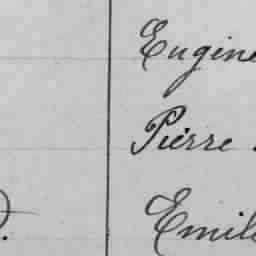 Eugine
Pierre
Emile